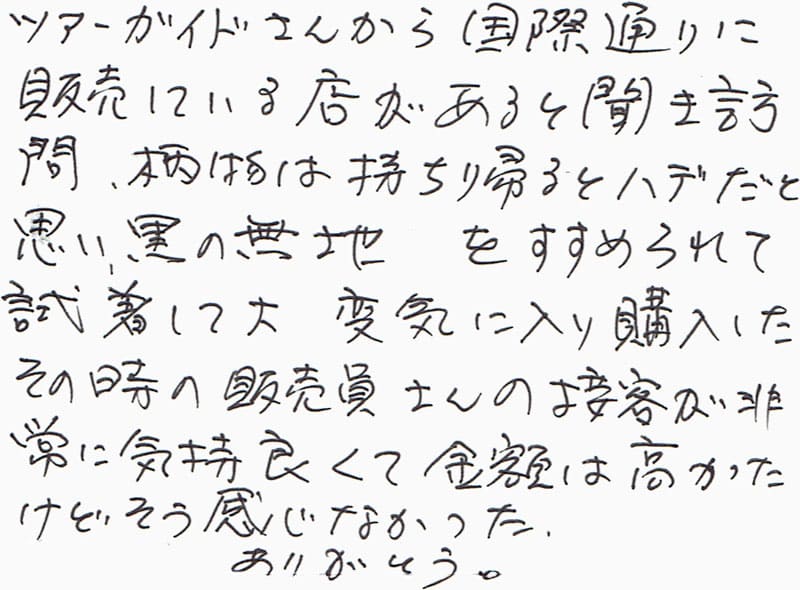 ツアーガイドさんから国際通りに
販売している店があると聞き訪
問、柄物は持ち帰るとハデだと
思い、黒の無地 をすすめられて
試着して大 変気に入り購入した
その時の販売員さんの接客が非
常に気持良くて金額は高かった
けどそう感じなかった、
ありがとう。